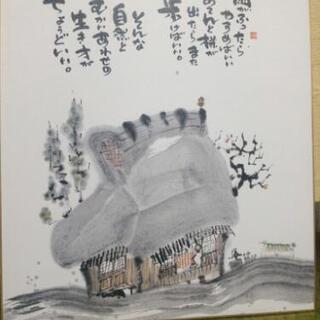 雨がふったら
やすめばいい
おてんと様が
出たらまた
歩けばいい。
そんな
自然と
むかいあわせの
生き方が
ちょうどいい。